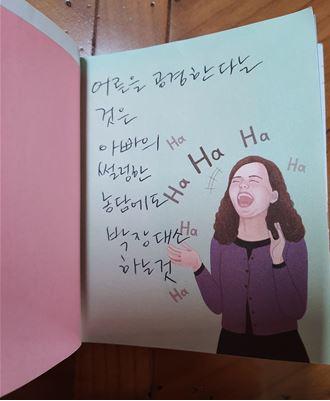 어른을 공경한다는
것은
아빠의
썰렁한
농담에도
박장대소
하는것
Ha
Ha
Ha
Ha
Ha
Ha
Ha